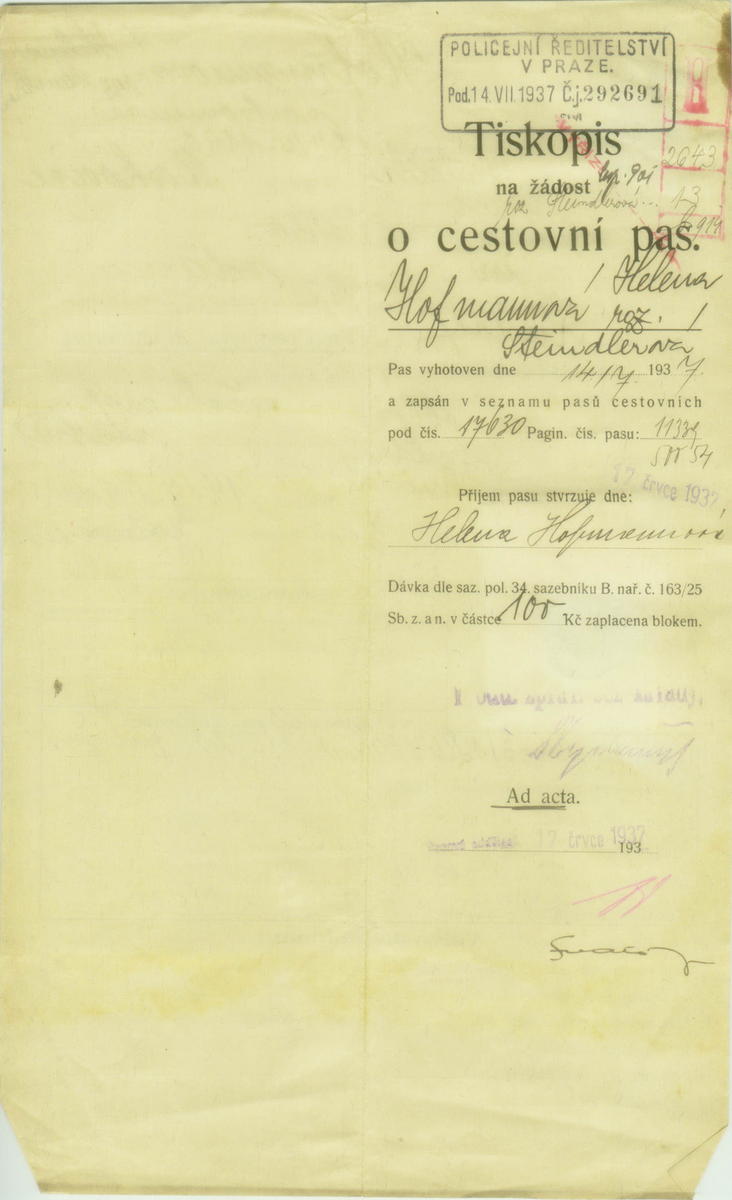 POLICEJNÍ ŘEDITELSTVÍ
V PRAZE.
Pod. 14.VII.1937 Č.j. 292691
Tiskopis
2643
na žádost
13
roz Steindlerová
6914
o cestovní pas.
Hofmannová Helena
roz.
Steindlerová
Pas vyhotoven dne 14/7. 1937.
a zapsán v seznamu pasů cestovních
pod čís. 17630 Pagin. čís. pasu: 11339
17. črvce 1937
Příjem pasu stvrzuje dne:
Helena Hofmannová
Dávka dle saz. pol. 34. sazebníku B. nař. č. 163/25
Sb. z. a n. v částce 100 Kč zaplacena blokem.
Ad acta.
17 črvce 1937
193